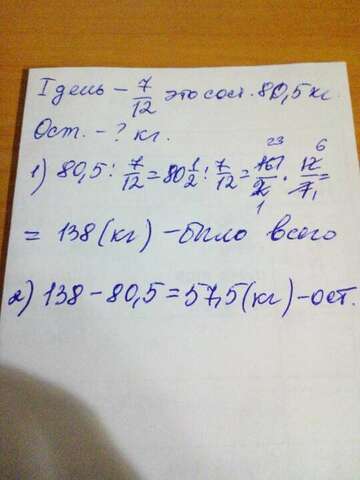 I день – 7/12 это сост. 80,5 кг.
Ост. – ? кг.
1) 80,5 : 7/12 = 80 1/2 : 7/12 = 161/2 · 12/7 =
23 6
1 1
= 138 (кг) – было всего
2) 138 – 80,5 = 57,5 (кг) – ост.